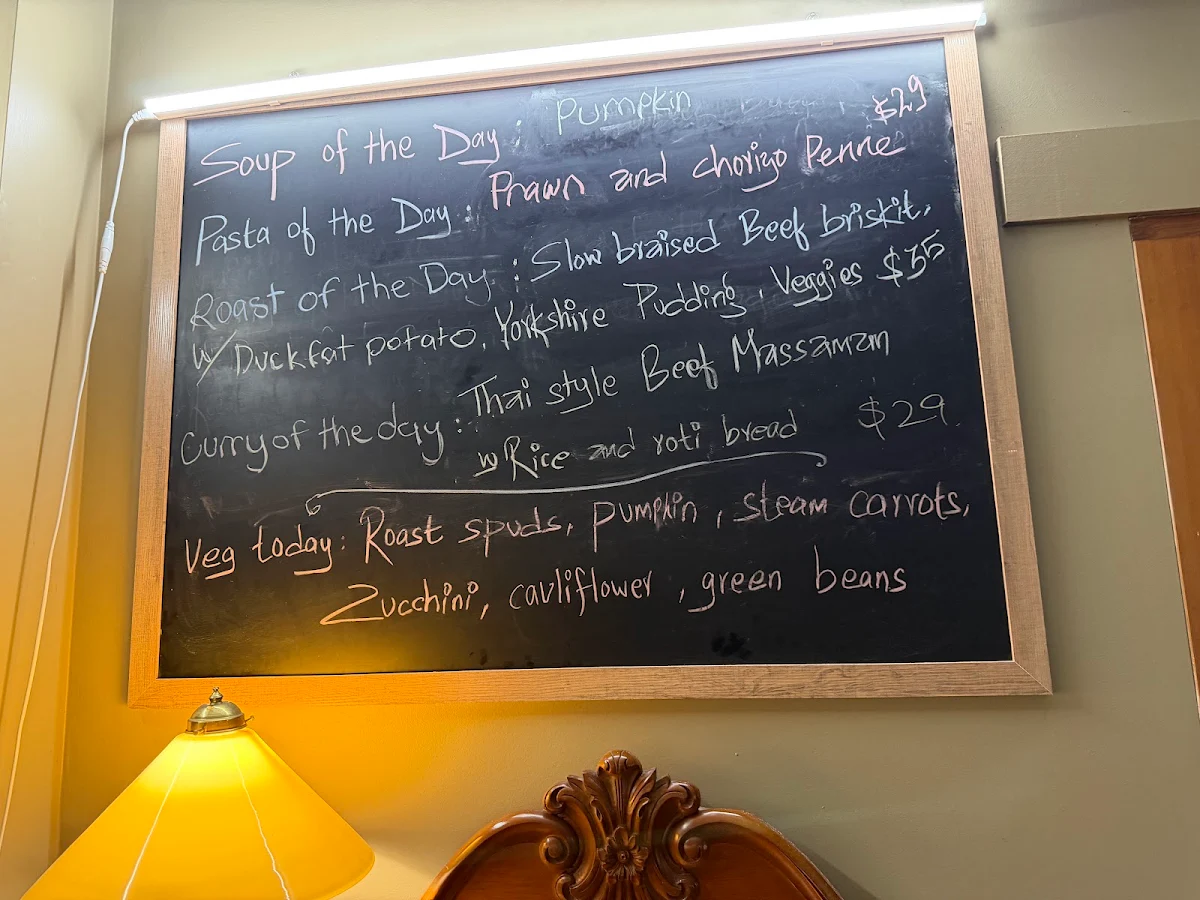 Soup of the Day : Pumpkin
$29
Pasta of the Day : Prawn and chorizo Penne
Roast of the Day : Slow braised Beef briskit,
w/ Duckfat potato, Yorkshire Pudding, Veggies $35
Curry of the day : Thai style Beef Massaman
w Rice and roti bread $29
Veg today : Roast spuds, pumpkin, steam carrots,
Zucchini, cauliflower, green beans